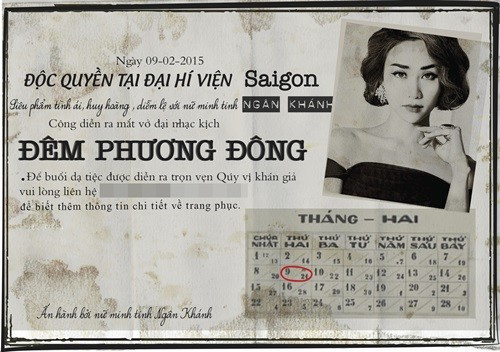 Ngày 09-02-2015
ĐỘC QUYỀN TẠI ĐẠI HÍ VIỆN Saigon
Siêu phẩm tình ái, huy hoàng, diễm lệ với nữ minh tinh NGÂN KHÁNH
Cộng diễn ra mắt vở đại nhạc kịch
ĐÊM PHƯƠNG ĐÔNG
.Để buổi dạ tiệc được diễn ra trọn vẹn Qúy vị khán giả
vui lòng liên hệ
để biết thêm thông tin chi tiết về trang phục.
THÁNG - HAI
CHÚA NHẬT THỨ HAI THỨ BA THỨ TƯ THỨ NĂM THỨ SÁU THỨ BẢY
1 2 3 4 5 6 7
8 9 10 11 12 13 14
15 16 17 18 19 20 21
22 23 24 25 26 27 28
Ấn hành bởi nữ minh tinh Ngân Khánh